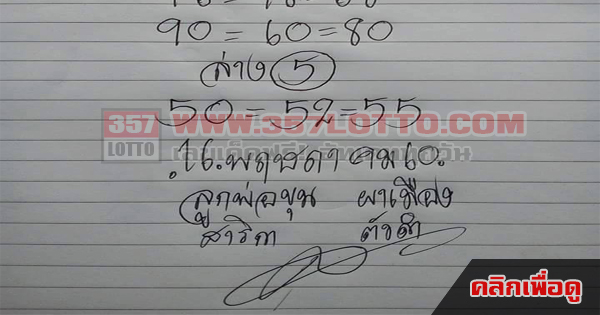 90 = 60 = 80
ล่าง 5
50 = 52 = 55
357 LOTTO WWW.357LOTTO.COM
16. พฤษภาคม 60.
ลูกพ่อขุน ผาเมือง
สาริกา ตัวดำ
คลิกเพื่อดู